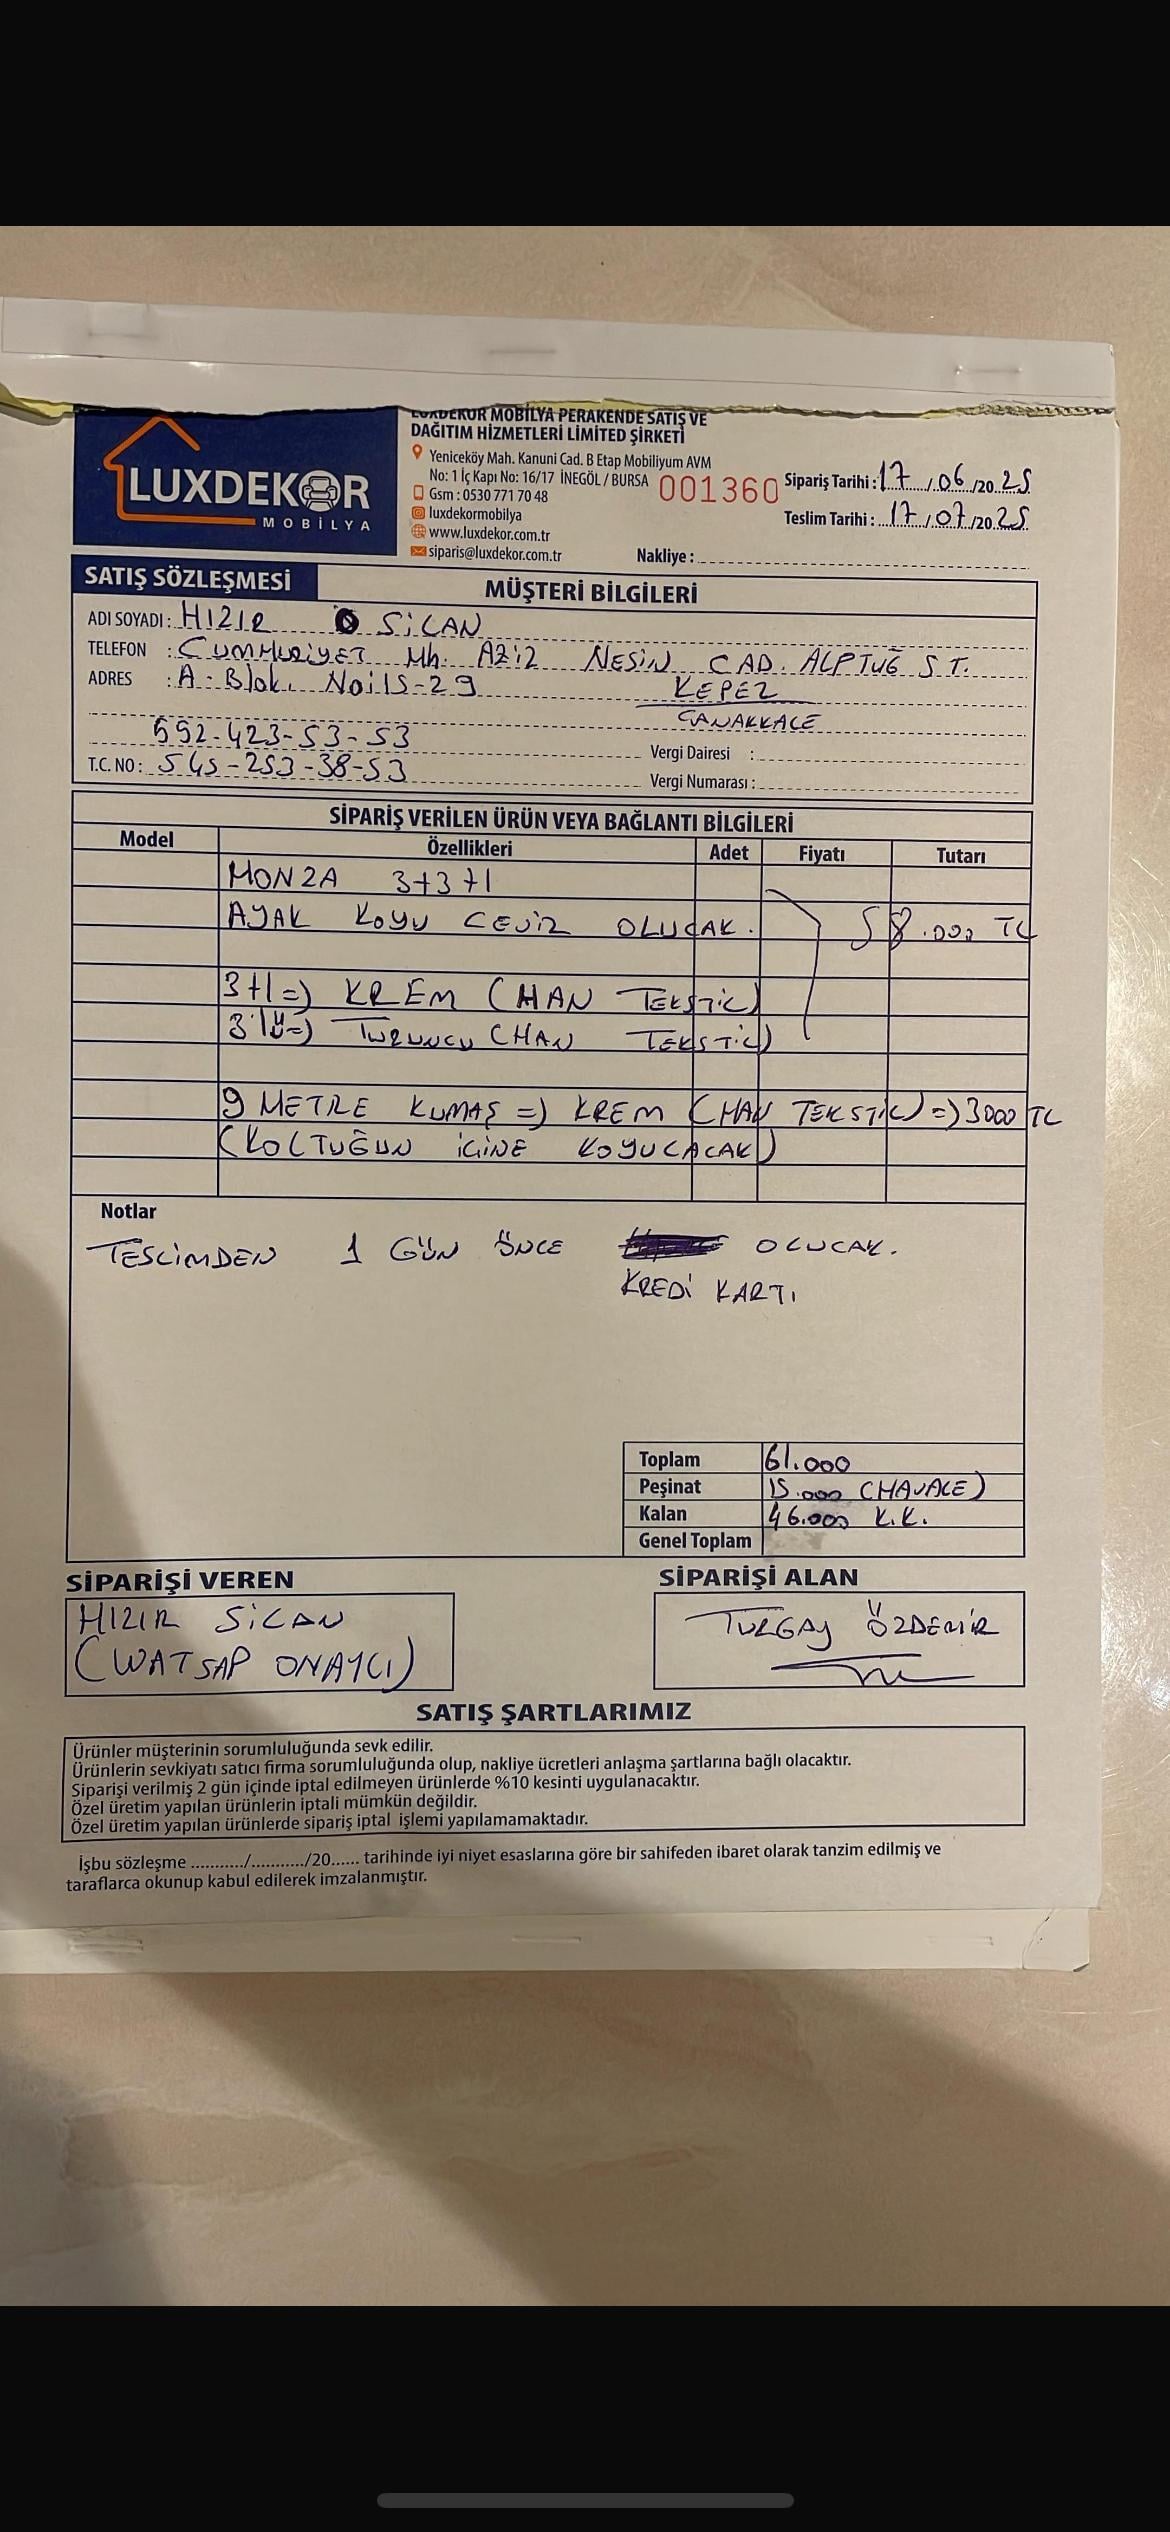 LUXDEKOR MOBİLYA PERAKENDE SATIŞ VE
DAĞITIM HİZMETLERİ LİMİTED ŞİRKETİ
LUXDEKOR
MOBİLYA
Yeniceköy Mah. Kanuni Cad. B Etap Mobiliyum AVM
No: 1 İç Kapı No: 16/17 İNEGÖL / BURSA
Gsm : 0530 771 70 48
luxdekormobilya
www.luxdekor.com.tr
siparis@luxdekor.com.tr
001360
Sipariş Tarihi : 17/06/2025
Teslim Tarihi : 17/07/2025
Nakliye :
SATIŞ SÖZLEŞMESİ
MÜŞTERİ BİLGİLERİ
ADI SOYADI : HIZIR SİCAN
TELEFON : CUMHURİYET Mh. AZİZ NESİN CAD. ALPTUĞ ST.
ADRES : A-Blok. No:15-29 KEPEZ
ÇANAKKALE
552-423-53-53
Vergi Dairesi :
T.C. NO : 545-253-38-53
Vergi Numarası :
SİPARİŞ VERİLEN ÜRÜN VEYA BAĞLANTI BİLGİLERİ
Model Özellikleri Adet Fiyatı Tutarı
MONZA 3+3+1
AYAK KOYU CEVİZ OLUCAK. 58.000 TL
3+1=) KREM (HAN TEKSTİL)
3'lü=) TURUNCU (HAN TEKSTİL)
9 METRE KUMAŞ =) KREM (HAN TEKSTİL) =) 3000 TL
(KOLTUĞUN İÇİNE KOYULACAK)
Notlar
TESLİMDEN 1 GÜN ÖNCE OLUCAK.
KREDİ KARTI
Toplam 61.000
Peşinat 15.000 (HAVALE)
Kalan 46.000 K.K.
Genel Toplam
SİPARİŞİ VEREN
SİPARİŞİ ALAN
HIZIR SİCAN
(WATSAP ONAYLI)
TURGAY ÖZDEMİR
SATIŞ ŞARTLARIMIZ
Ürünler müşterinin sorumluluğunda sevk edilir.
Ürünlerin sevkiyatı satıcı firma sorumluluğunda olup, nakliye ücretleri anlaşma şartlarına bağlı olacaktır.
Siparişi verilmiş 2 gün içinde iptal edilmeyen ürünlerde %10 kesinti uygulanacaktır.
Özel üretim yapılan ürünlerin iptali mümkün değildir.
Özel üretim yapılan ürünlerde sipariş iptal işlemi yapılamamaktadır.
İşbu sözleşme .........../.........../20...... tarihinde iyi niyet esaslarına göre bir sahifeden ibaret olarak tanzim edilmiş ve
taraflarca okunup kabul edilerek imzalanmıştır.